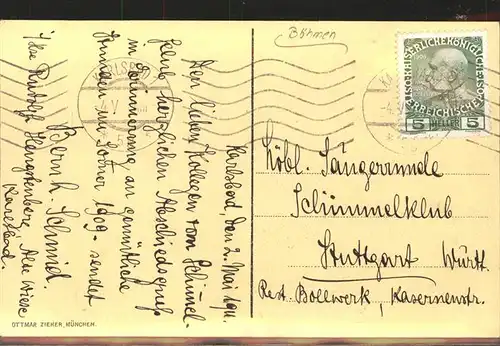 Böhmen
KARLSBAD
KAISERLICHE KÖNIGLICHE
ÖSTERREICHISCHE POST
5 HELLER 5
Karlsbad, den 2. Mai 1911.
Den lieben Kollegen vom Schimmel-
klub herzlichen Abschiedsgruß
in Erinnerung an gemütliche
Stunden im Sommer 1909. sendet
Bernh. Schmid.
Rudolf Hengstenberg, Alte Wiese
Karlsbad.
Löbl. Sängerrunde
Schimmelklub
Stuttgart Württ.
Rest. Bollwerk, Kasernenstr.
OTTMAR ZIEHER, MÜNCHEN.